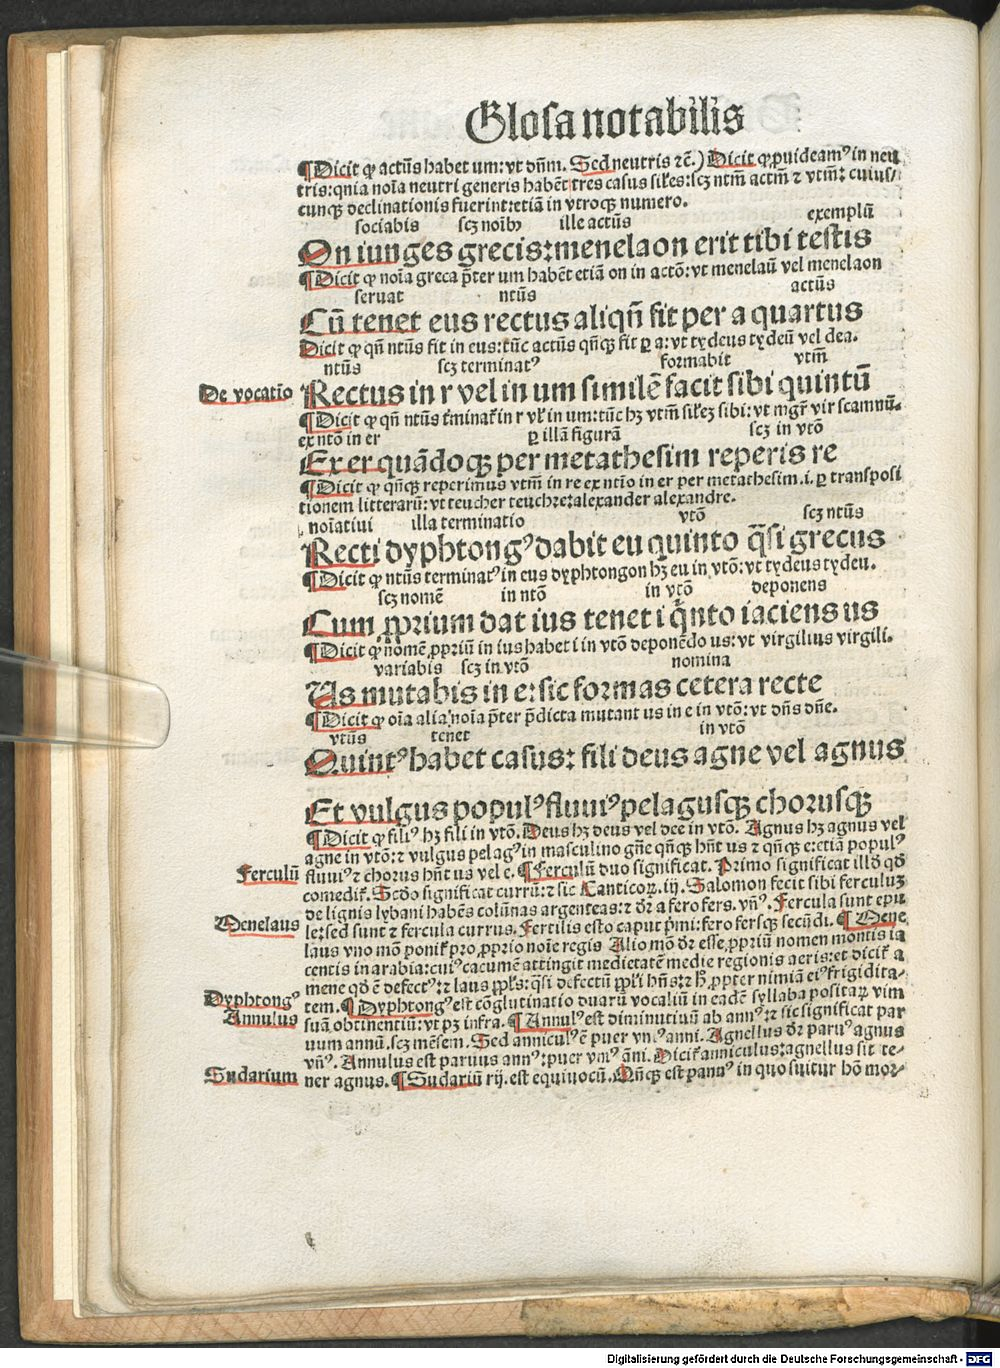 Glosa notabilis
¶Dicit ꝙ actūs habet um: vt dn̄m. Sed neutris ⁊ē.) Dicit ꝙ ꝓuideamꝰ in neu
tris: qnia noīa neutri generis habēt tres casus siłes: scꝫ ntm̄ actm̄ ⁊ vtm̄: cuius/
cunqꝫ declinationis fuerint: etiā in vtroqꝫ numero.
sociabis scꝫ noībꝰ ille actūs exemplū
On iunges grecis: menelaon erit tibi testis
¶Dicit ꝙ noīa greca p̄ter um habēt etiā on in actō: vt menelaū vel menelaon
seruat ntūs actūs
Cū tenet eus rectus aliqn̄ fit per a quartus
Dicit ꝙ qn̄ ntūs fit in eus: tūc actūs qn̄qꝫ fit ꝑ a: vt tydeus tydeū vel dea.
ntūs scꝫ terminatꝰ formabit vtm̄
De vocatīo
Rectus in r vel in um similē facit sibi quintū
¶Dicit ꝙ qn̄ ntūs t̄minat̄ in r vł in um: tūc hꝫ vtm̄ siłeꝫ sibi: vt mgr̄ vir scamnū.
ex ntō in er ꝑ illā figurā scꝫ in vtō
Ex er quādoqꝫ per metathesim reperis re
¶Dicit ꝙ qn̄qꝫ reperimus vtm̄ in re ex ntīo in er per metathesim .i. ꝑ transposi
tionem litterarū: vt teucher teuchre: alexander alexandre.
noīatiui illa terminatio vtō scꝫ ntūs
Recti dyphtongꝰ dabit eu quinto q̄si grecus
¶Dicit ꝙ ntūs terminatꝰ in eus dyphtongon hꝫ eu in vtō: vt tydeus tydeu.
scꝫ nomē in ntō in vtō deponens
Cum ꝓprium dat ius tenet i q̄nto iaciens us
¶Dicit ꝙ nomē ꝓpriū in ius habet i in vtō deponēdo us: vt virgilius virgili.
variabis scꝫ in vtō nomina
Us mutabis in e: sic formas cetera recte
¶Dicit ꝙ oīa alia noīa p̄ter p̄dicta mutant us in e in vtō: vt dn̄s dn̄e.
vtūs tenet in vtō
Quintꝰ habet casus: fili deus agne vel agnus
Et vulgus populꝰ fluuiꝰ pelagusqꝫ chorusqꝫ
¶Dicit ꝙ filiꝰ hꝫ fili in vtō. Deus hꝫ deus vel dee in vtō. Agnus hꝫ agnus vel
agne in vtō: ⁊ vulgus pelagꝰ in masculino gn̄e qn̄qꝫ hn̄t us ⁊ qn̄qꝫ e: etiā populꝰ
Ferculū
fluuiꝰ ⁊ chorus hn̄t us vel e. ¶Ferculū duo significat. Primo significat illd̄ qd̄
comedit̄. Scd̄o significat currū: ⁊ sic Canticoꝝ .iij. Salomon fecit sibi ferculuꝫ
de lignis lybani habēs colūnas argenteas: ⁊ dr̄ a fero fers. vn̄ꝰ. Fercula sunt epu
Menelaus
le: sed sunt ⁊ fercula currus. Fertilis esto caput p̄mi: fero fersqꝫ secūdi. ¶Mene
laus vno mō ponit̄ pro ꝓprio noīe regis Alio mō dr̄ esse ꝓpriū nomen montis ia
centis in arabia: cuiꝰ cacumē attingit medietatē medie regionis aeris: et dicit̄ a
mene qd̄ ē defectꝰ: ⁊ laus ppłs: q̄si defectū ppłi hn̄s: ⁊ h̄ ꝓpter nimiā eiꝰ frigidita-
Dyphtongꝰ
tem. ¶Dyphtongꝰ est cōglutinatio duarū vocaliū in eadē syllaba positaꝝ vim
Annulus
suā obtinentiū: vt pꝫ infra. ¶Annulꝰ est diminutiuū ab annꝰ: ⁊ sic significat par
uum annū. scꝫ mēsem. Sed anniculꝰ ē puer vniꝰ anni. Agnellus dr̄ paruꝰ agnus
vn̄ꝰ. Annulus est paruus annꝰ: puer vniꝰ āni. Dicit̄ anniculus: agnellus sit te-
Sudarium
ner agnus. ¶Sudariū rij. est equiuocū. Qn̄qꝫ est pannꝰ in quo suitur hō mor-
Digitalisierung gefördert durch die Deutsche Forschungsgemeinschaft - DFG